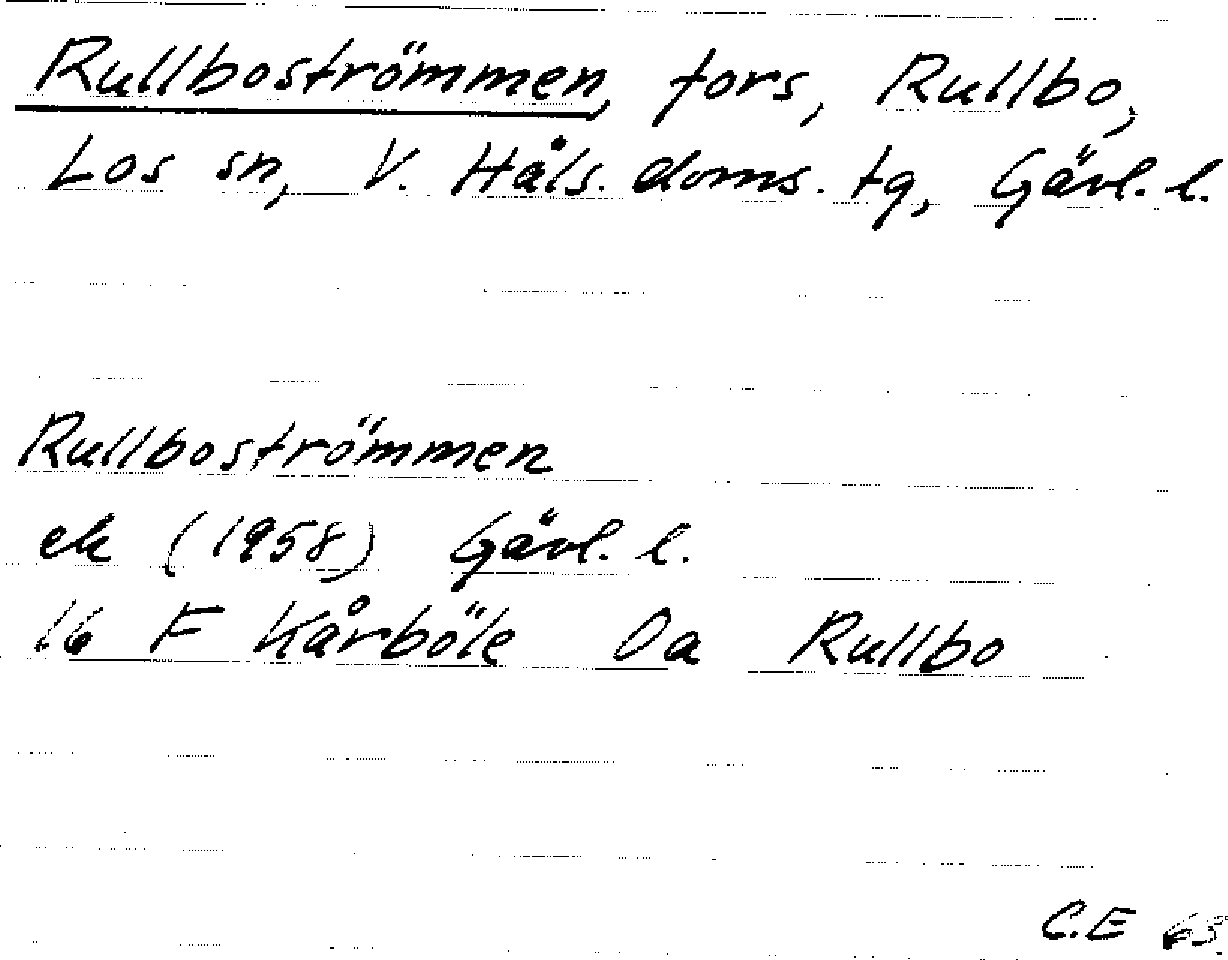 Rullboströmmen, fors, Rullbo,
Los sn, V. Häls. doms. tg, Gävl. l.
Rullboströmmen
ek (1958) Gävl. l.
16 F Kårböle Oa Rullbo
C.E 63